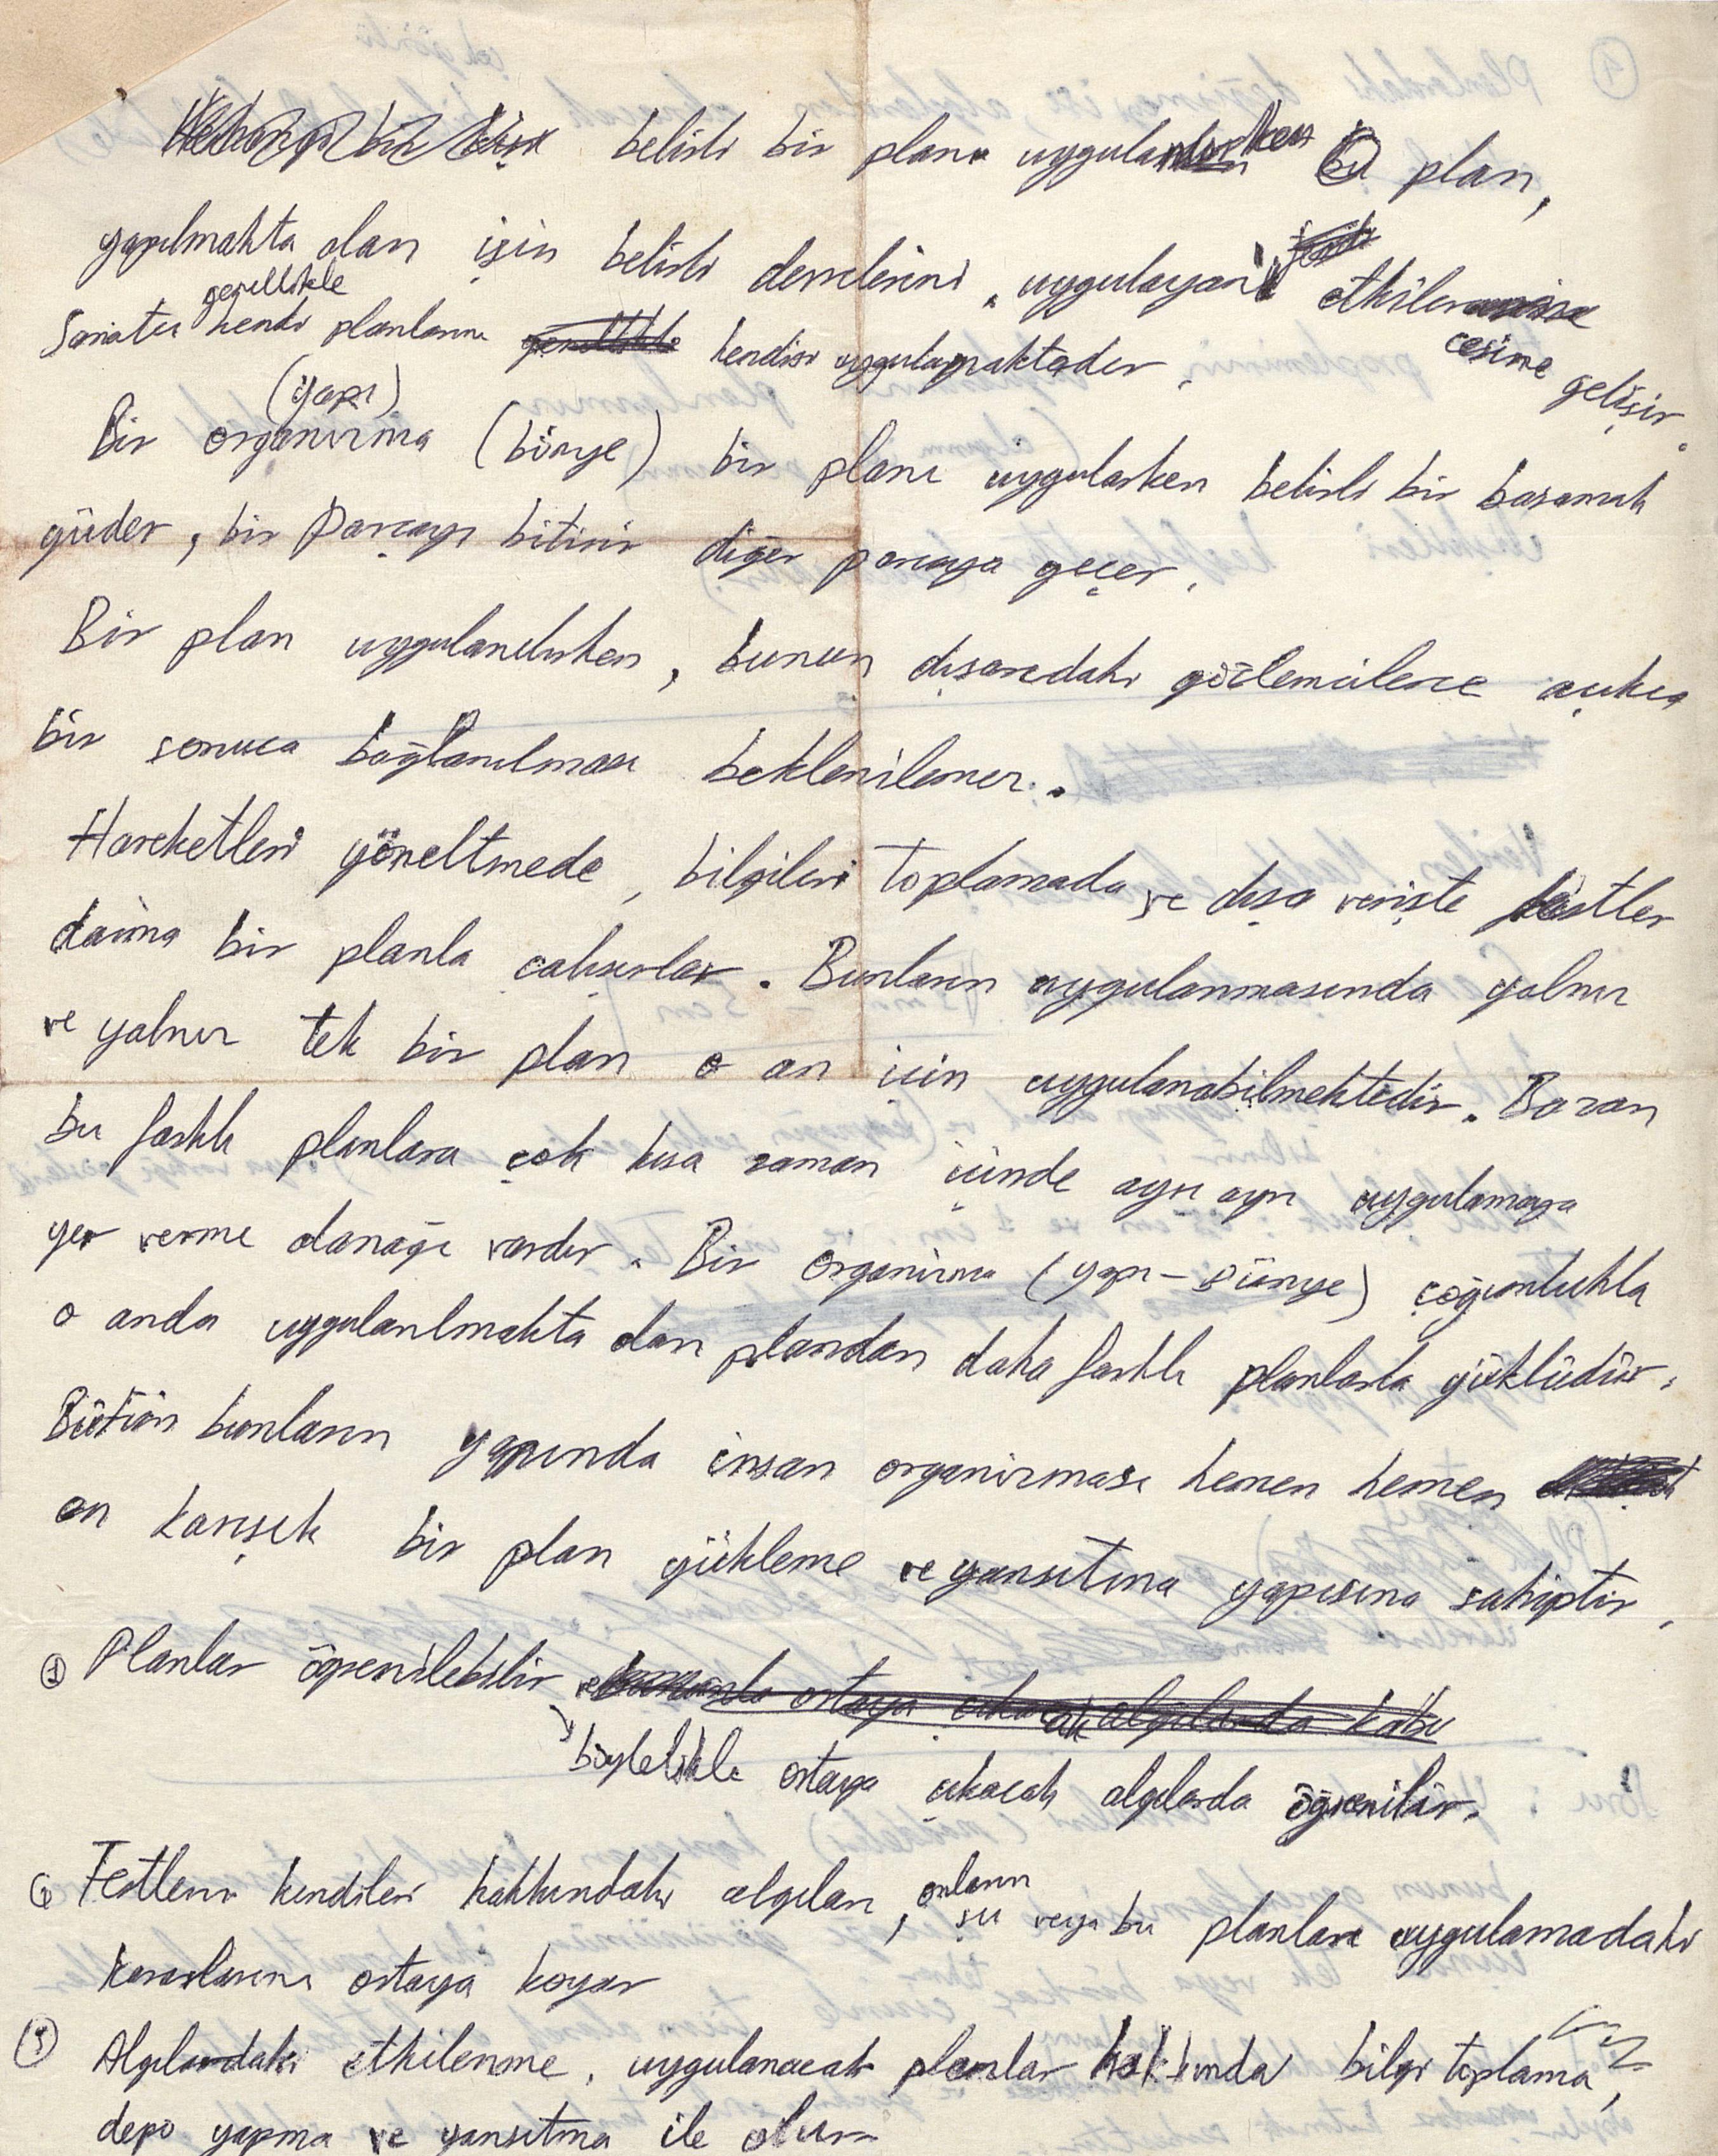 belirli bir planı uygularken bu plan,
yapılmakta olan işin belirli devrelerini, uygulayanı etkilercesine gelişir.
Sanatçı genellikle kendi planlarını kendisi uygulamaktadır.
Bir organizma (yapı) (bünye) bir planı uygularken belirli bir basamak
güder, bir parçayı bitirir diğer parçaya geçer.
Bir plan uygulanılırken, bunun dışarıdaki gözlemcilerce açıkça
bir sonuca bağlanılması beklenilemez.
Hareketleri yöneltmede, bilgileri toplamada ve dışa verişte testler
daima bir planla çalışırlar. Bunların uygulanmasında yalnız
ve yalnız tek bir plan o an için uygulanabilmektedir. Bazan
bu farklı planlara çok kısa zaman içinde ayrı ayrı uygulamaya
yer verme olanağı vardır. Bir organizma (yapı - bünye) çoğunlukla
o anda uygulanılmakta olan plandan daha farklı planlarla yüklüdür.
Bütün bunların yapında insan organizması hemen hemen
en karışık bir plan yükleme ve yansıtma yapısına sahiptir.
① Planlar öğrenilebilir ve
böylelikle ortaya çıkacak algılarda öğrenilir.
Testlerin kendileri hakkındaki algıları, onların şu veya bu planları uygulamadaki
kararlarını ortaya koyar
③ Algılardaki etkilenme, uygulanacak planlar hakkında bilgi toplama,
depo yapma ve yansıtma ile olur